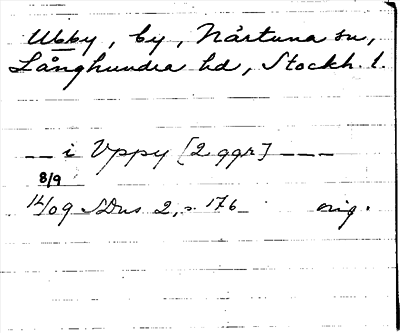 Ubby, by, Närtuna sn,
Långhundra hd, Stockh. l.
— — i Vppy [2 ggr] — — —
8/9
14/09 SDns 2, s. 176 orig.